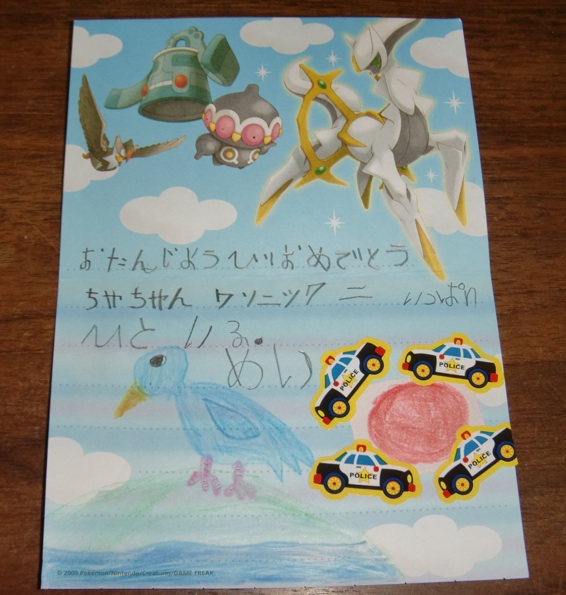 おたんじようひおめでとう
ちやちやん クソニック ニ いっぱい
めい
POLICE
POLICE
POLICE
POLICE
© 2009 Pokémon/Nintendo/Creatures/GAME FREAK